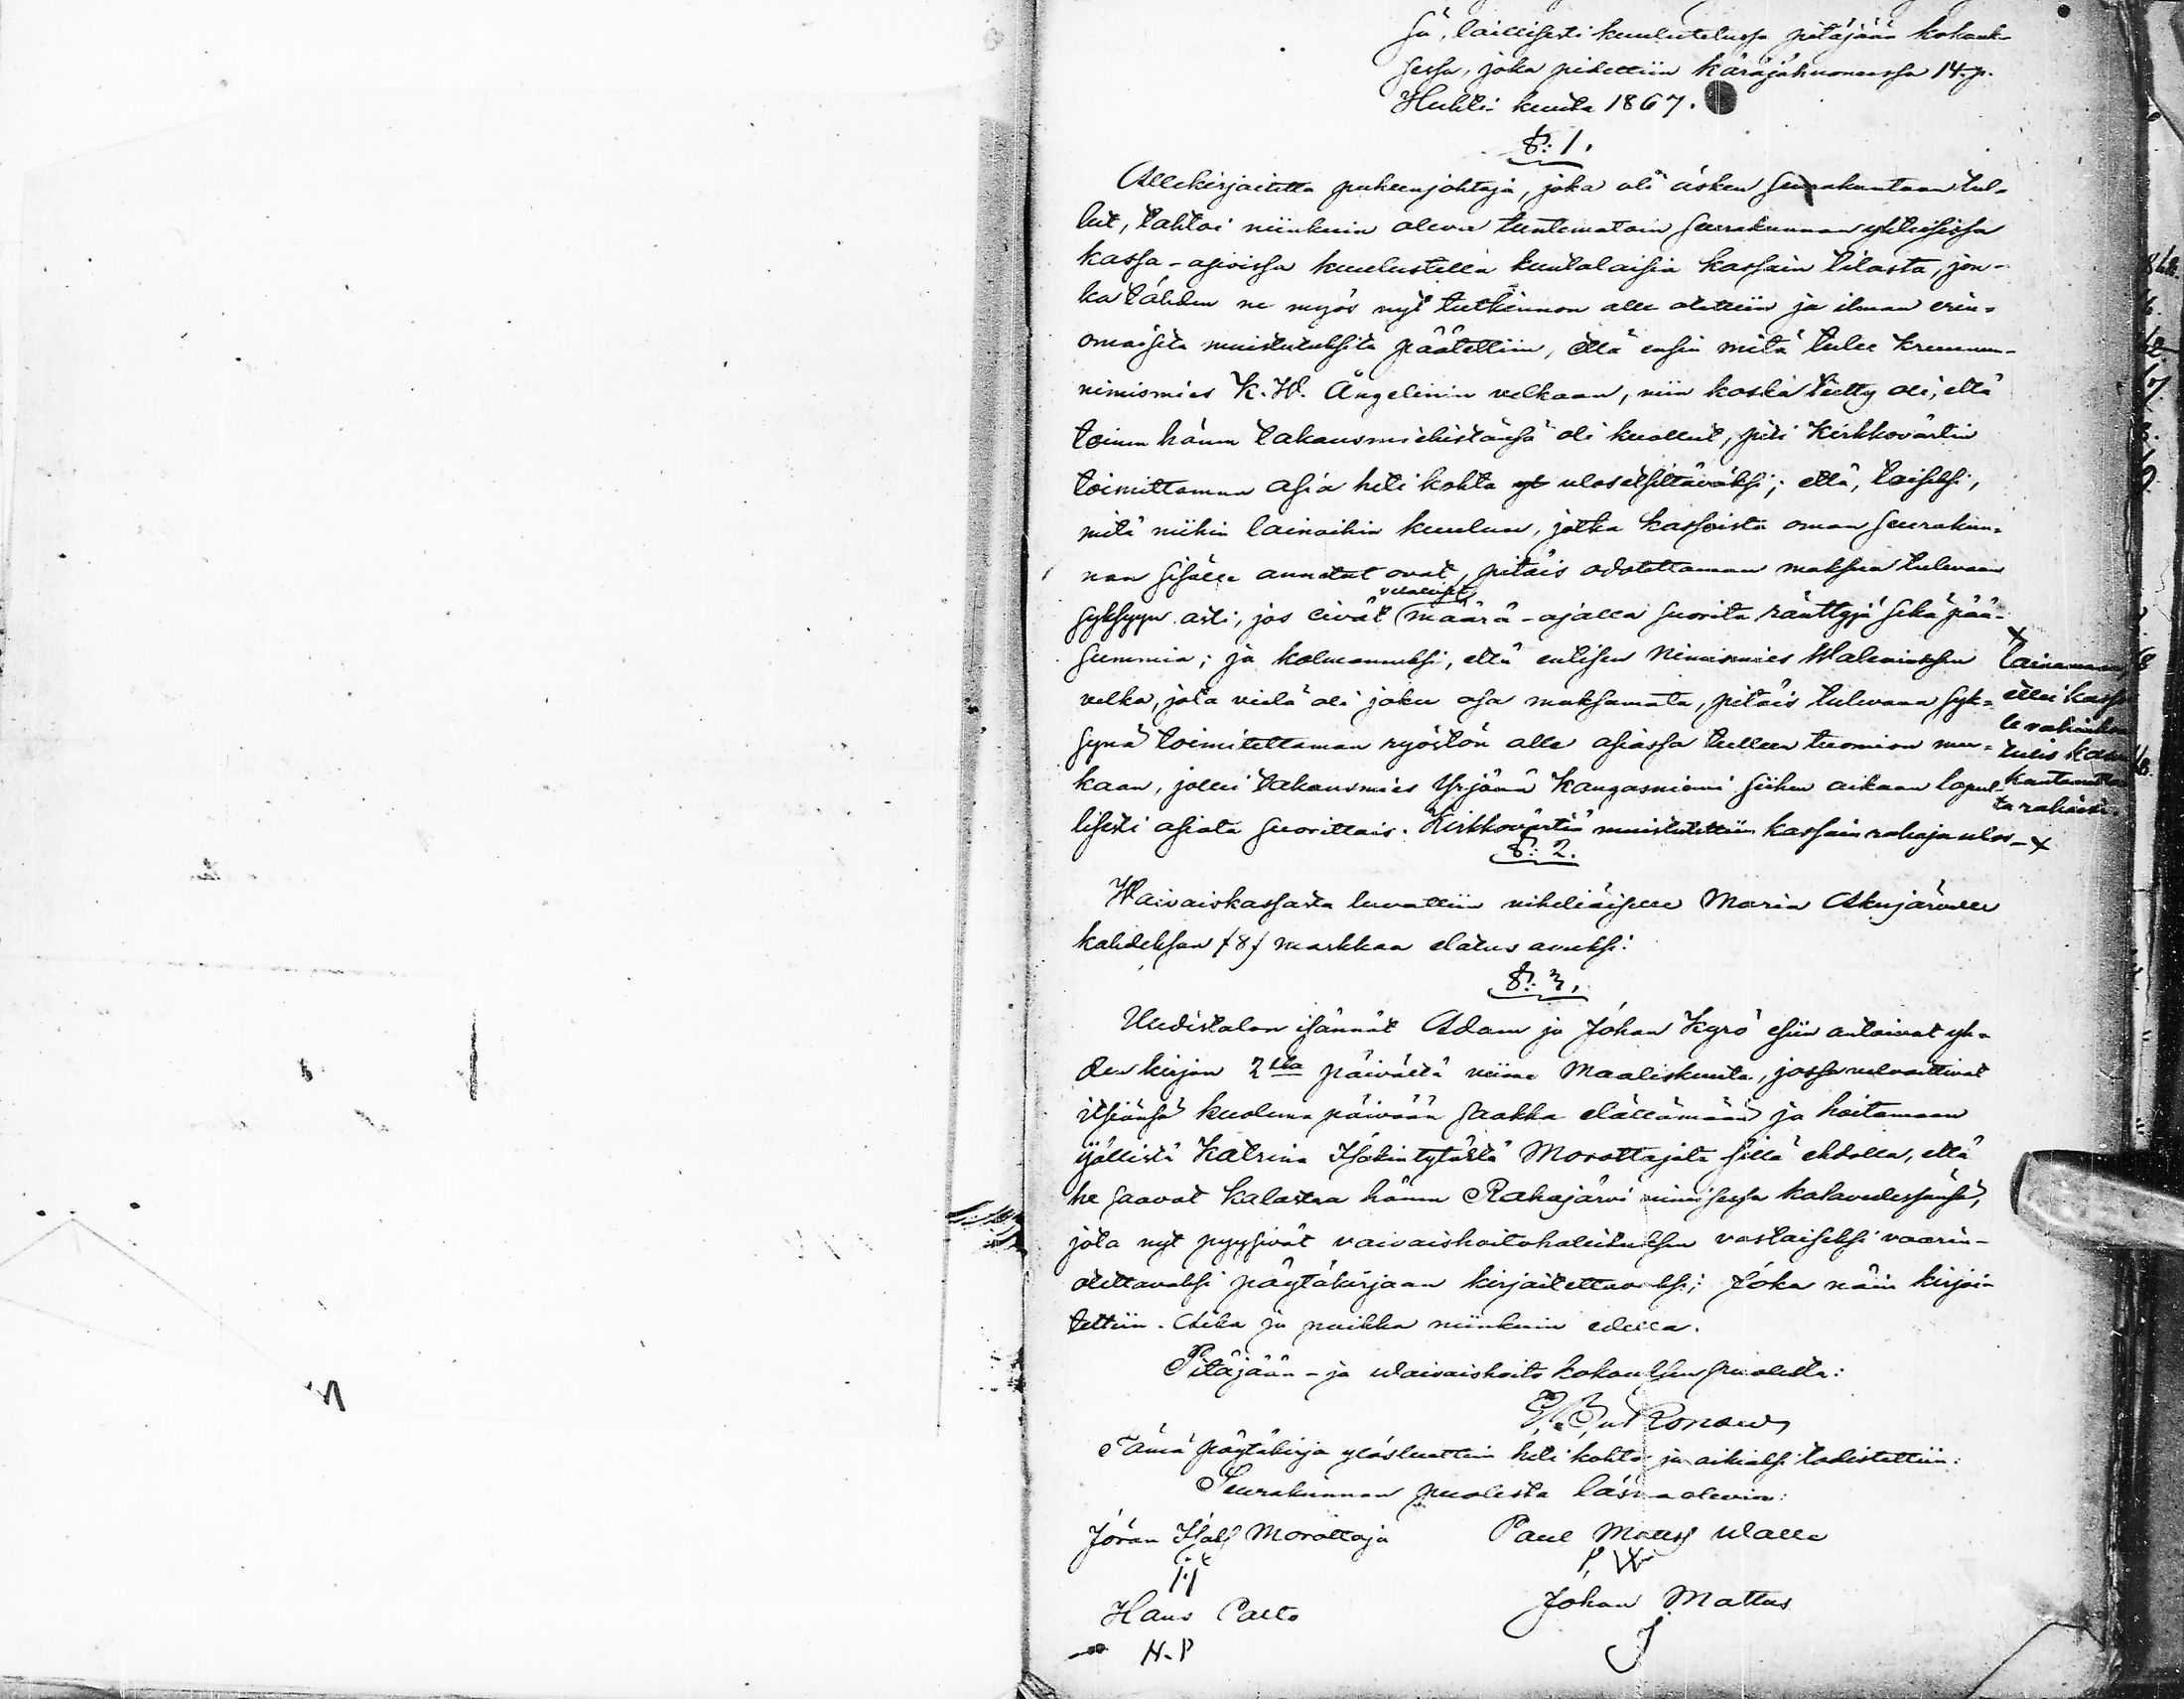 sä, laillisesti kuulutelussa pitäjään kokouk-
sessa, joka pidettiin käräjähuoneessa 14. p.
Huhti-kuuta 1867.
§: 1.
Allekirjoitettu puheenjohtaja, joka oli äsken seurakuntaan tul-
lut, tahtoi niinkuin oleva tuntematoin seurakunnan yhteisissä
kassa-asioissa kuulustella kuntalaisia kassain tilasta, jon-
ka tähden ne myös nyt tutkinnon alle otettiin ja ilman erin-
omaisita muistutuksita päätettiin, että ensin mitä tulee kruunun-
nimismies K. W. Ångelinin velkaan, niin koska tietty oli, että
toinen hänen takausmiehistänsä oli kuollut, piti Kirkkovärtin
toimittaman asia heti kohta ulosetsittäväksi; että, toiseksi,
mitä niihin lainoihin kuuluu, jotka kassoista oman seurakun-
nan sisälle annetut ovat, pitäis odotettaman maksua tulevaan
velalliset
syksyyn asti, jos eivät määrä-ajalla suorita ränttyjä sekä pää-
summia; ja kolmanneksi, että entisen Nimismies Waleniuksen
velka, jota vielä oli joku osa maksamata, pitäis tulevana syk-
synä toimitettaman ryöstön alle asiassa tulleen tuomion mu-
kaan, jollei takausmies Yrjänä Kangasniemi siihen aikaan lopul-
lisesti asiata suorittais. Kirkkovärtiä muistutettiin kassain rahoja ulos- x
x
lainaamaan,
ettei kassa
le vahinkoa
tulis
§: 2.
Waivaiskassasta luvattiin viheliäiselle Maria Akujärvelle
kahdeksan /8/ markkaa elatus avuksi.
§: 3.
Uudistalon isännät Adam ja Johan Kyrö esiin antoivat yh-
den kirjan 2sta päivästä viime Maaliskuuta, jossa velvoittivat
itsiänsä kuolema päivään saakka elättämään ja hoitamaan
ijällistä Katrina Isakintytärtä Morottajata sillä ehdolla, että
he saavat kalastaa hänen Rahajärvi nimisessä kalavedessänsä,
jota nyt pyysivät vaivaishoitohallituksen vastaiseksi vaarin-
otettavaksi pöytäkirjaan kirjoitettavaksi; Joka näin kirjoi-
tettiin. Aika ja paikka niinkuin edellä.
Pitäjään- ja waivaishoito kokouksen puolesta:
Tämä pöytäkirja ylösluettiin heti kohta ja oikiaksi todistettiin:
Seurakunnan puolesta läsnä olevia:
Jöran Isaks Morottaja Paul Matts Walle
P. W
Hans Palto Johan Mattus
H. P J